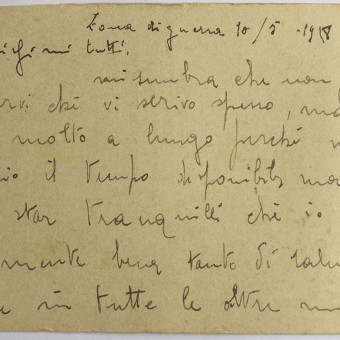 Zona di guerra 10/5 - 1918
mi tutti.
mi sembra che non
rvi chè vi scrivo spesso, ma
molto a lungo perchè
io il tempo disponibile ma
star tranquilli chè io
mente bene tanto di salu
e in tutte le altre